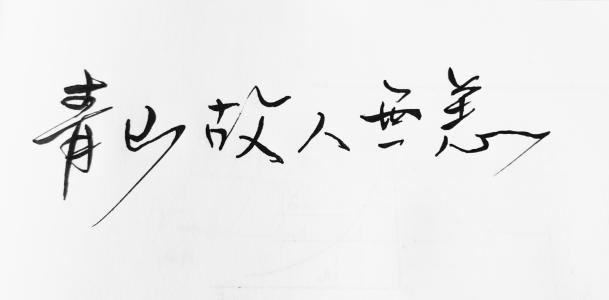 青山故人無恙